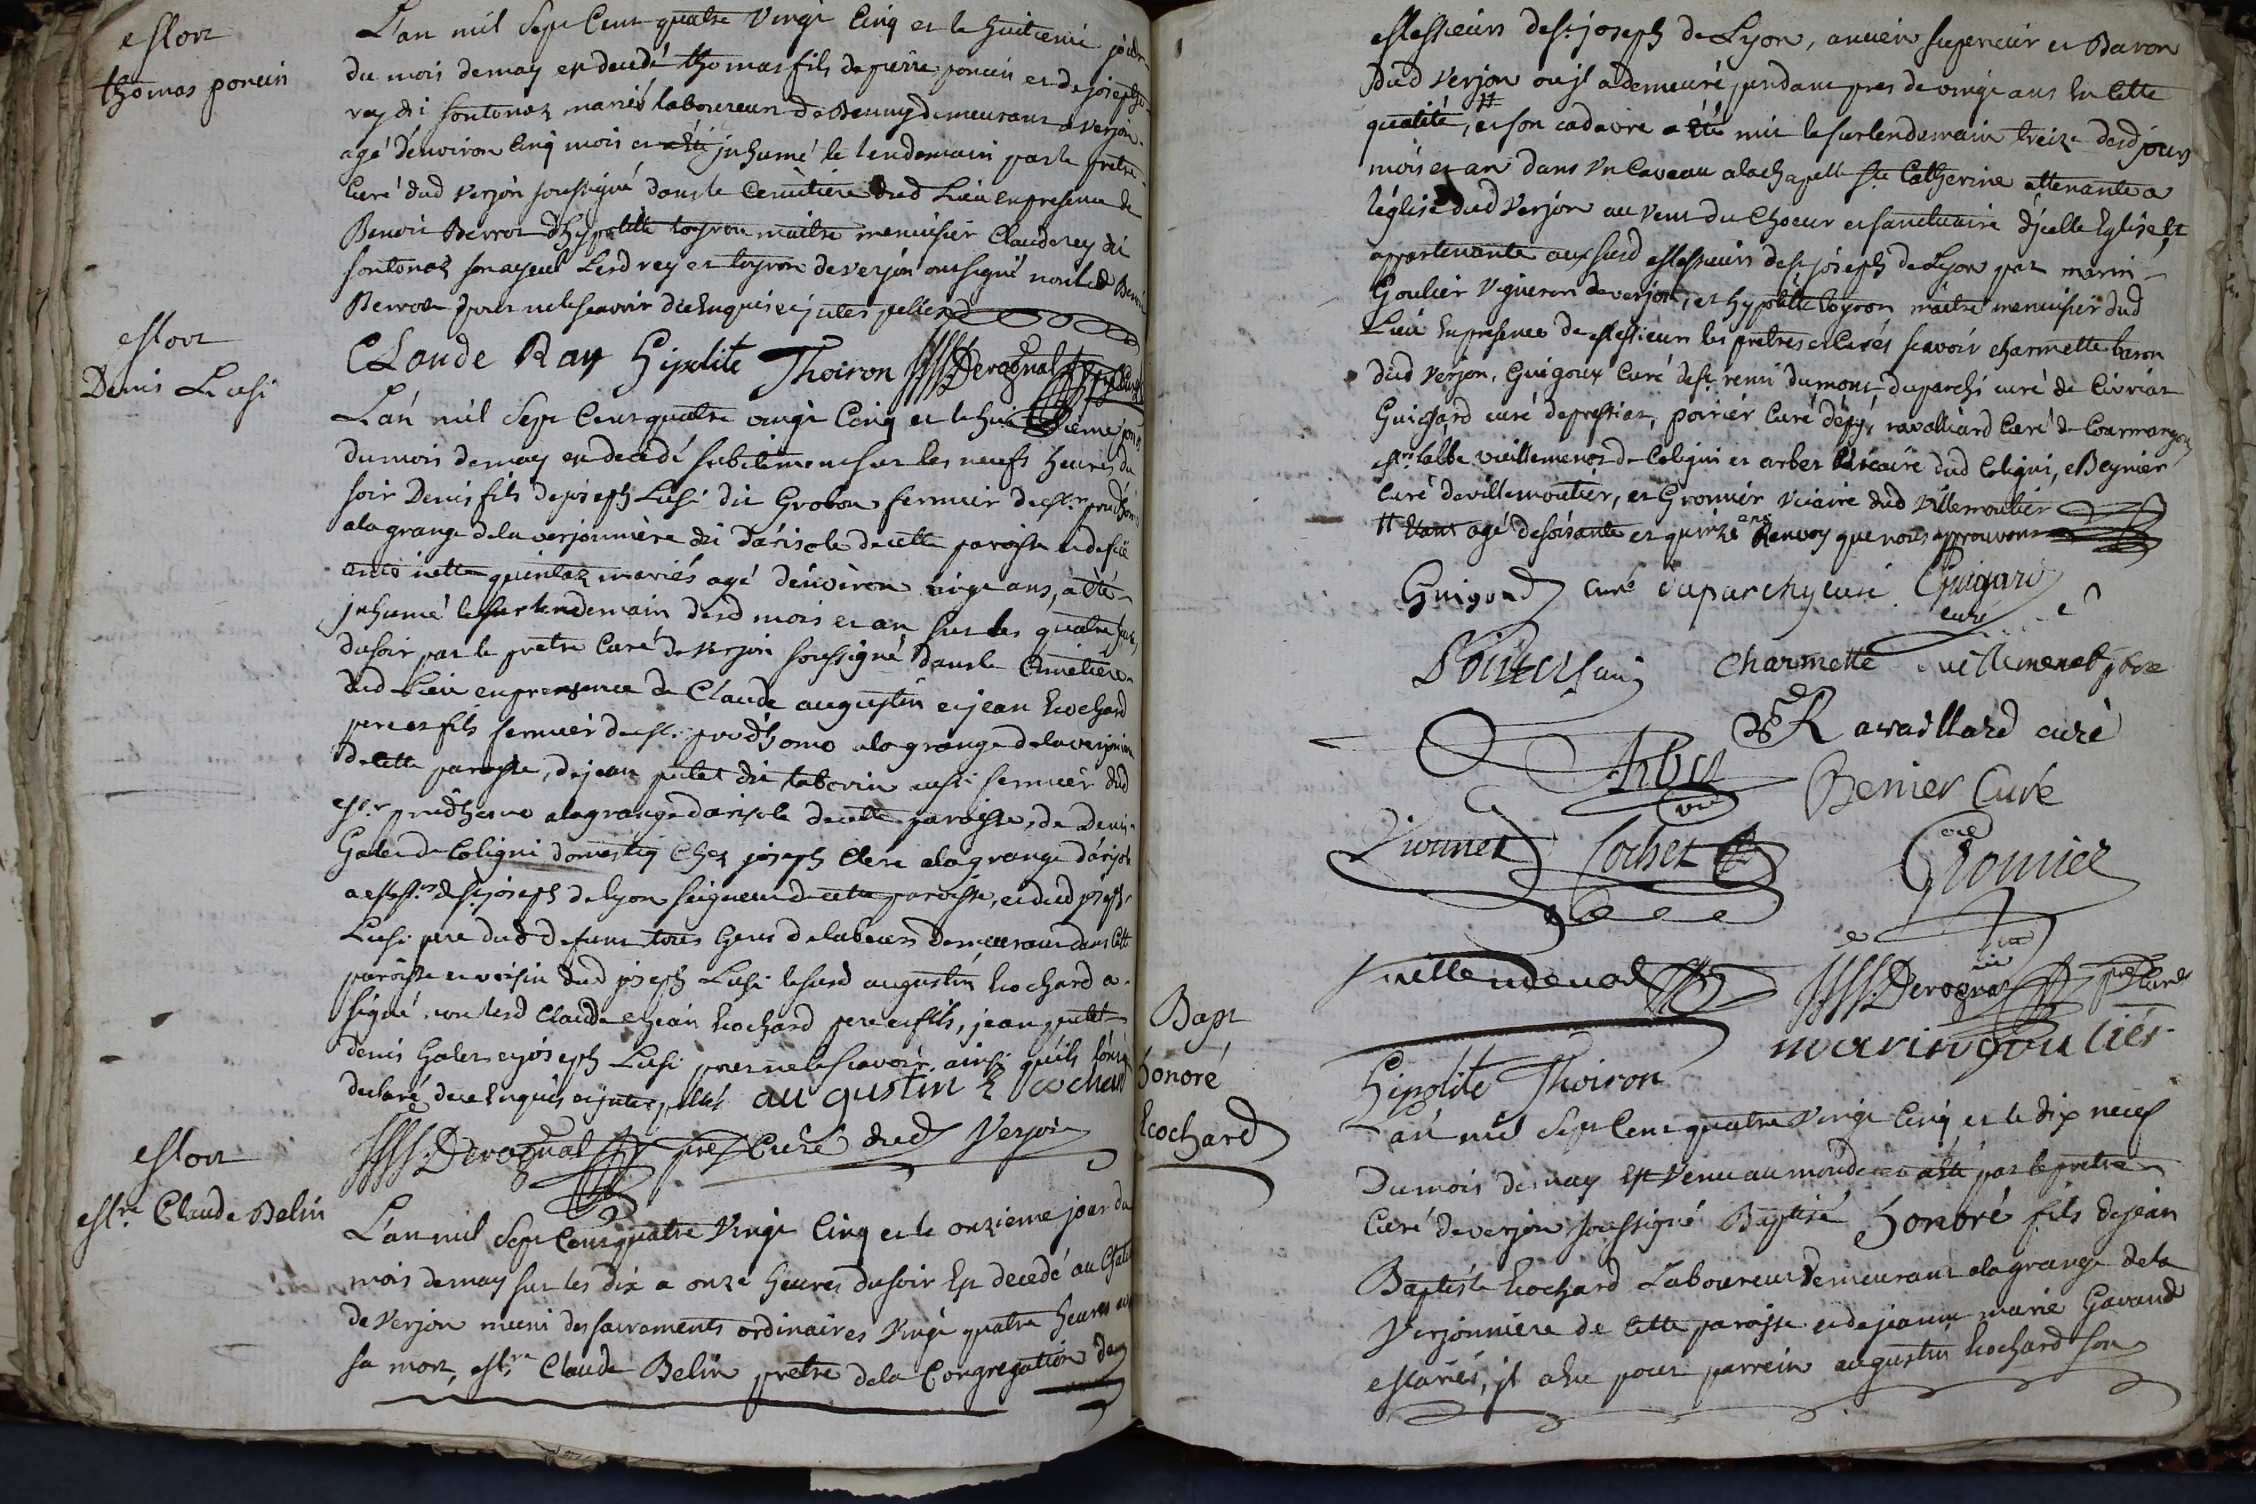 Mort
thomas poncin
L'an mil sept Cent quatre Vingt Cinq et le huitieme jour
du mois de may est decedé thomas fils de pierre poncin et de josephe
rey dit fontenaz mariés laboureur de Benny demeurant a verjon
agé d'environ Cinq mois et a été jnhumé le lendemain par le pretre
Curé dud Verjon soussigné dans le Cemitiere dud Lieu en presence de
Benoit Berrod d'hypolitte toyron maitre menuisier Claude rey dit
fontenaz son ayeul Lesd rey et toyron de verjon ont signé non led Benoit
Berrod pour ne le scavoir de ce Enquis et jnterpellés
CLaude Ray Hipolite Thoiron Derognat ptre Curé
Mort
Denis Lusi
L'an mil Sept Cent quatre vingt Cinq et le huitieme jour
du mois de may est decedé subitement sur les neufs heures du
soir Denis fils de joseph Lusi dit Grobon fermier de Mr. prudhome
a la grange de la verjonnière dit d'arisole de cette paroisse et de
antoinette quintaz mariés agé d'environ vingt ans, a été
jnhumé le surlendemain desd mois et an sur les quatre heures
du soir par le pretre Curé de Verjon soussigné dans le Cimetiere
dud Lieu en presence de Claude augustin et jean Ecochard
pere et fils fermier de Mr. prudhomo a la grange de la verjonniere
de cette paroisse, de jean putet dit taborin aussi fermier dud
Mr prudhomo a la grange d'arisole de cette paroisse, de Denis
Galer de Coligni domestiq Chez joseph Clere a la grange d'arisole
a Mrs. de St. joseph de lyon seigneur de cette paroisse, et dud joseph
Lusi pere dud defunt tous Gens de labeur Demeurant dans Cette
paroisse et voisin dud joseph Lusi lesusd augustin Ecochard a
signé, non lesd Claude et jean Ecochard pere et fils, jean putet
denis Galer et joseph Lusi pour ne le scavoir ainsi qu'ils l'ont
declaré de ce Enquis et jnterpellés augustin Ecochard
Derognat ptre Curé dud Verjon
Mort
Mre Claude Belin
L'an mil Sept Cent quatre Vingt Cinq et le onzieme jour du
mois de may sur les dix a onze heures du soir Est decedé au Chateau
de Verjon muni des sacraments ordinaires Vingt quatre heures avant
sa mort, Mre Claude Belin pretre de la Congregation de
Messieurs de St. joseph de Lyon, ancien superieur et Baron
dud Verjon ou jl a demeuré pendant pres de vingt ans En Cette
qualité, # et son cadavre a été mis le surlendemain treize desd jour
mois et an dans Un Caveau a la chapelle Ste Catherine attenante a
l'église dud Verjon au vent du Choeur et sanctuaire d'jcelle Eglise Et
appartenante aux susd Messieurs de St. joseph de Lyon par marin
Goulier Vigneron de verjon, et hypolitte toyron maitre menuisier dud
Lieu En presence de Messieurs les pretres et Curés scavoir charmette baron
dud verjon, Guigoux Curé de St. remi du mont, duparchi curé de Civriat
Guichard curé de pressiat, poirier Curé d'épy, ravailliard Curé de Courmangoux
Mre l'abbé vuillemenot de Coligni et arbez Vicaire dud Coligni, Meynier
Curé de villemoutier, et Gromier Vicaire dud Villemoutier
# Etant agé de soixante et quinze ans Renvoy que nous approuvons
Guigoud curé duparchy curé Guigard curé
Poirier Curé Charmette vuillemenot ptre
Ravaillard curé
Arbez vic Benier Curé
Vionnet Cochet Gromier
vic
Vuillendenot Derognat ptre Curé
marin goulier
Hipolite Thoiron
Bapt
honoré
Ecochard
L'an mil Sept Cent quatre Vingt Cinq et le dix neuf
Du mois de may Est Venu au monde et a été par le pretre
Curé de verjon soussigné Baptisé honoré fils de jean
Baptiste Ecochard Laboureur demeurant a la grange de la
Verjonniere de Cette paroisse et de jeanne marie Gavand
Mariés, jl a Eu pour parrein augustin Ecochard son